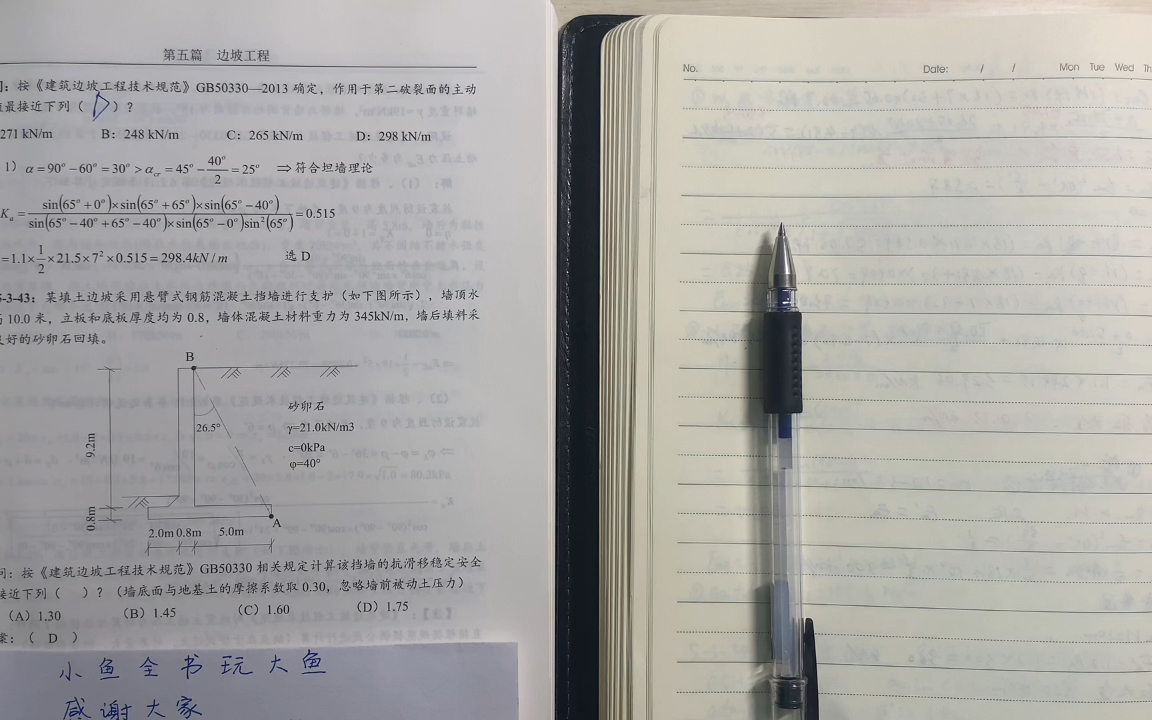 第五篇 边坡工程
问：按《建筑边坡工程技术规范》GB50330—2013 确定，作用于第二破裂面的主动
最接近下列（ D ）？
271 kN/m B：248 kN/m C：265 kN/m D：298 kN/m
1）α=90°−60°=30°>α_cr=45°−40°/2=25° ⇒符合坦墙理论
K_a=sin(65°+0°)×sin(65°+65°)×sin(65°−40°)/sin(65°−40°+65°−40°)×sin(65°−0°)sin²(65°)=0.515
=1.1×1/2×21.5×7²×0.515=298.4kN/m 选 D
5-3-43：某填土边坡采用悬臂式钢筋混凝土挡墙进行支护（如下图所示），墙顶水
高 10.0 米，立板和底板厚度均为 0.8，墙体混凝土材料重力为 345kN/m，墙后填料采
良好的砂卵石回填。
B
26.5°
砂卵石
γ=21.0kN/m3
c=0kPa
φ=40°
9.2m
0.8m
A
2.0m 0.8m 5.0m
问：按《建筑边坡工程技术规范》GB50330 相关规定计算该挡墙的抗滑移稳定安全
接近下列（ ）？（墙底面与地基土的摩擦系数取 0.30，忽略墙前被动土压力）
（A）1.30 （B）1.45 （C）1.60 （D）1.75
案：（ D ）
小鱼全书玩大鱼
感谢大家
No. Date: / / Mon Tue Wed Th